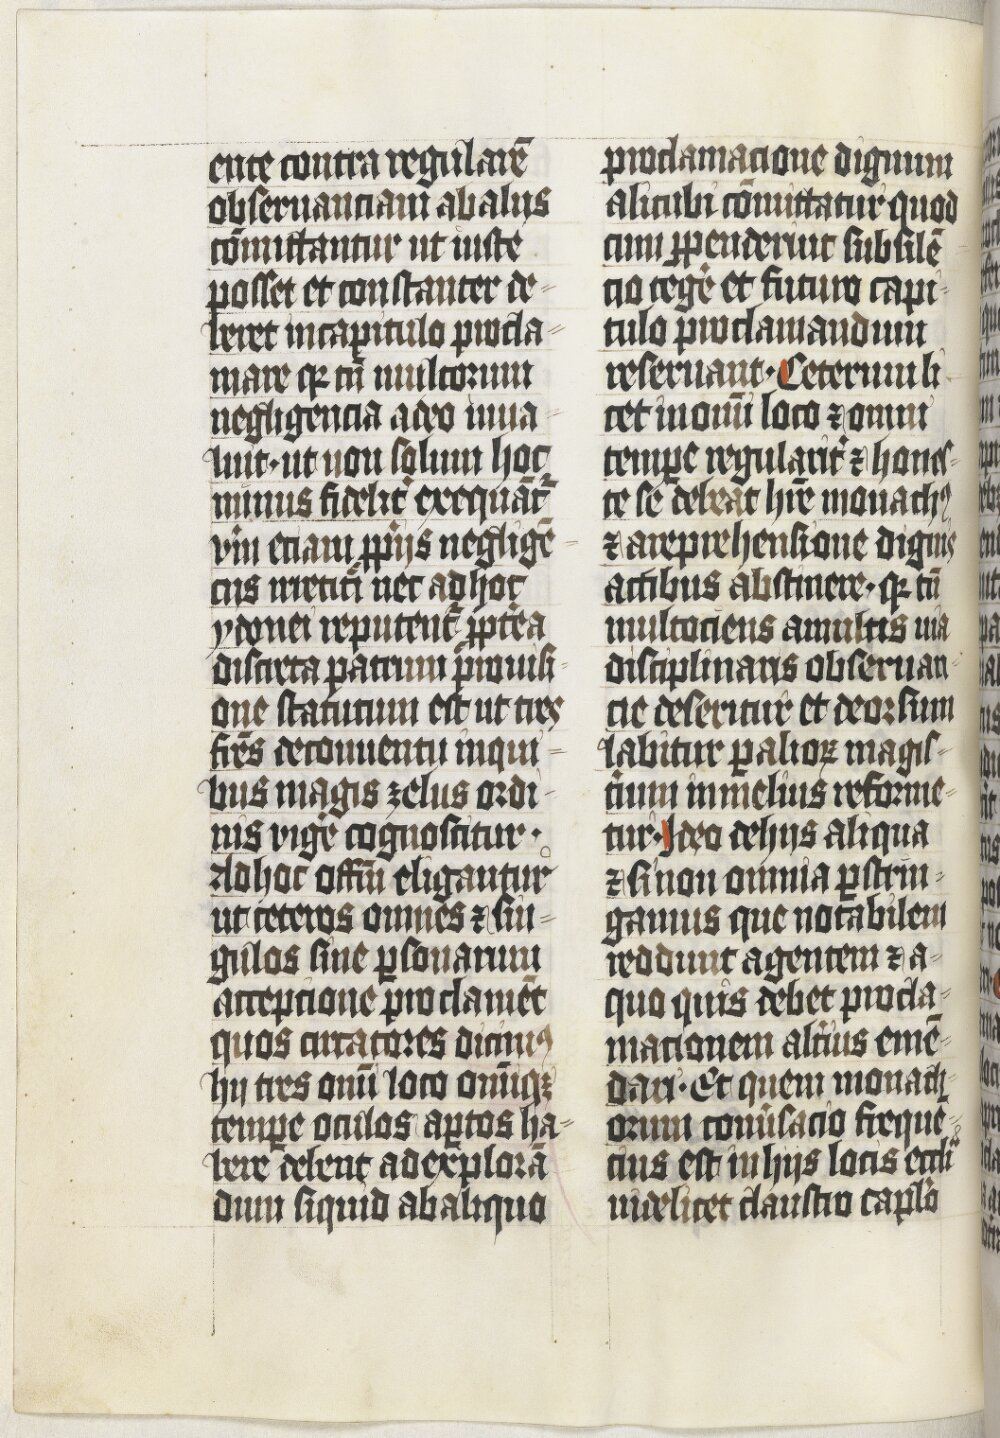 ente contra regularē
obseruanciam ab alijs
cōmittantur ut iuste
posset et constanter de-
beret in capitulo procla-
mare qꝛ tn̄ multorum
negligencia adeo inua-
luit· ut non solum hoc
minus fidelit᷑ exequāt᷑
vm̄ etiam ꝓprijs negligē-
cijs irretiti nec ad hoc
ydonei reputent᷑ ꝓpt̄ea
discreta patrum prouisi-
one statutum est ut tres
frēs de conuentu in qui-
bus magis zelus ordi-
nis vige̅ cognoscitur·
Ad hoc offm̄ eligantur
ut ceteros omnes ⁊ sin-
gulos sine ꝑsonarum
acceptione proclamēt
quos curatores dicimꝰ
hij tres om̄i loco om̄iqꝫ
tempe̅ oculos aꝑtos ha-
bere debent ad explorā
dum siquid ab aliquo
proclamacione dignum
alicubi cōmittatur quod
cum ꝓpenderint sub silē
cio tege̅ et futuro capi-
tulo proclamandum
reseruant· Ceterum li
cet in om̄i loco ⁊ omni
tempe̅ regularit᷑ ⁊ hones-
te se debeat hr̄e monachꝰ
⁊ a reprehensione dignis
actibus abstinere· qꝛ tn̄
multociens a multis uia
disciplinaris obseruan-
cie deseritur et deorsum
labitur ꝑ alioꝝ magis-
terium in melius reforme-
tur· Ideo de hijs aliqua
⁊ si non omnia ꝑstrin-
gamus que notabilem
reddunt agentem ⁊ a-
quo quis debet procla-
mationem alterius emē-
dari· Et quem monach-
orum conūsacio freque̅-
cius est in hijs locis eccl̄i
uidelicet claustro caplo̅